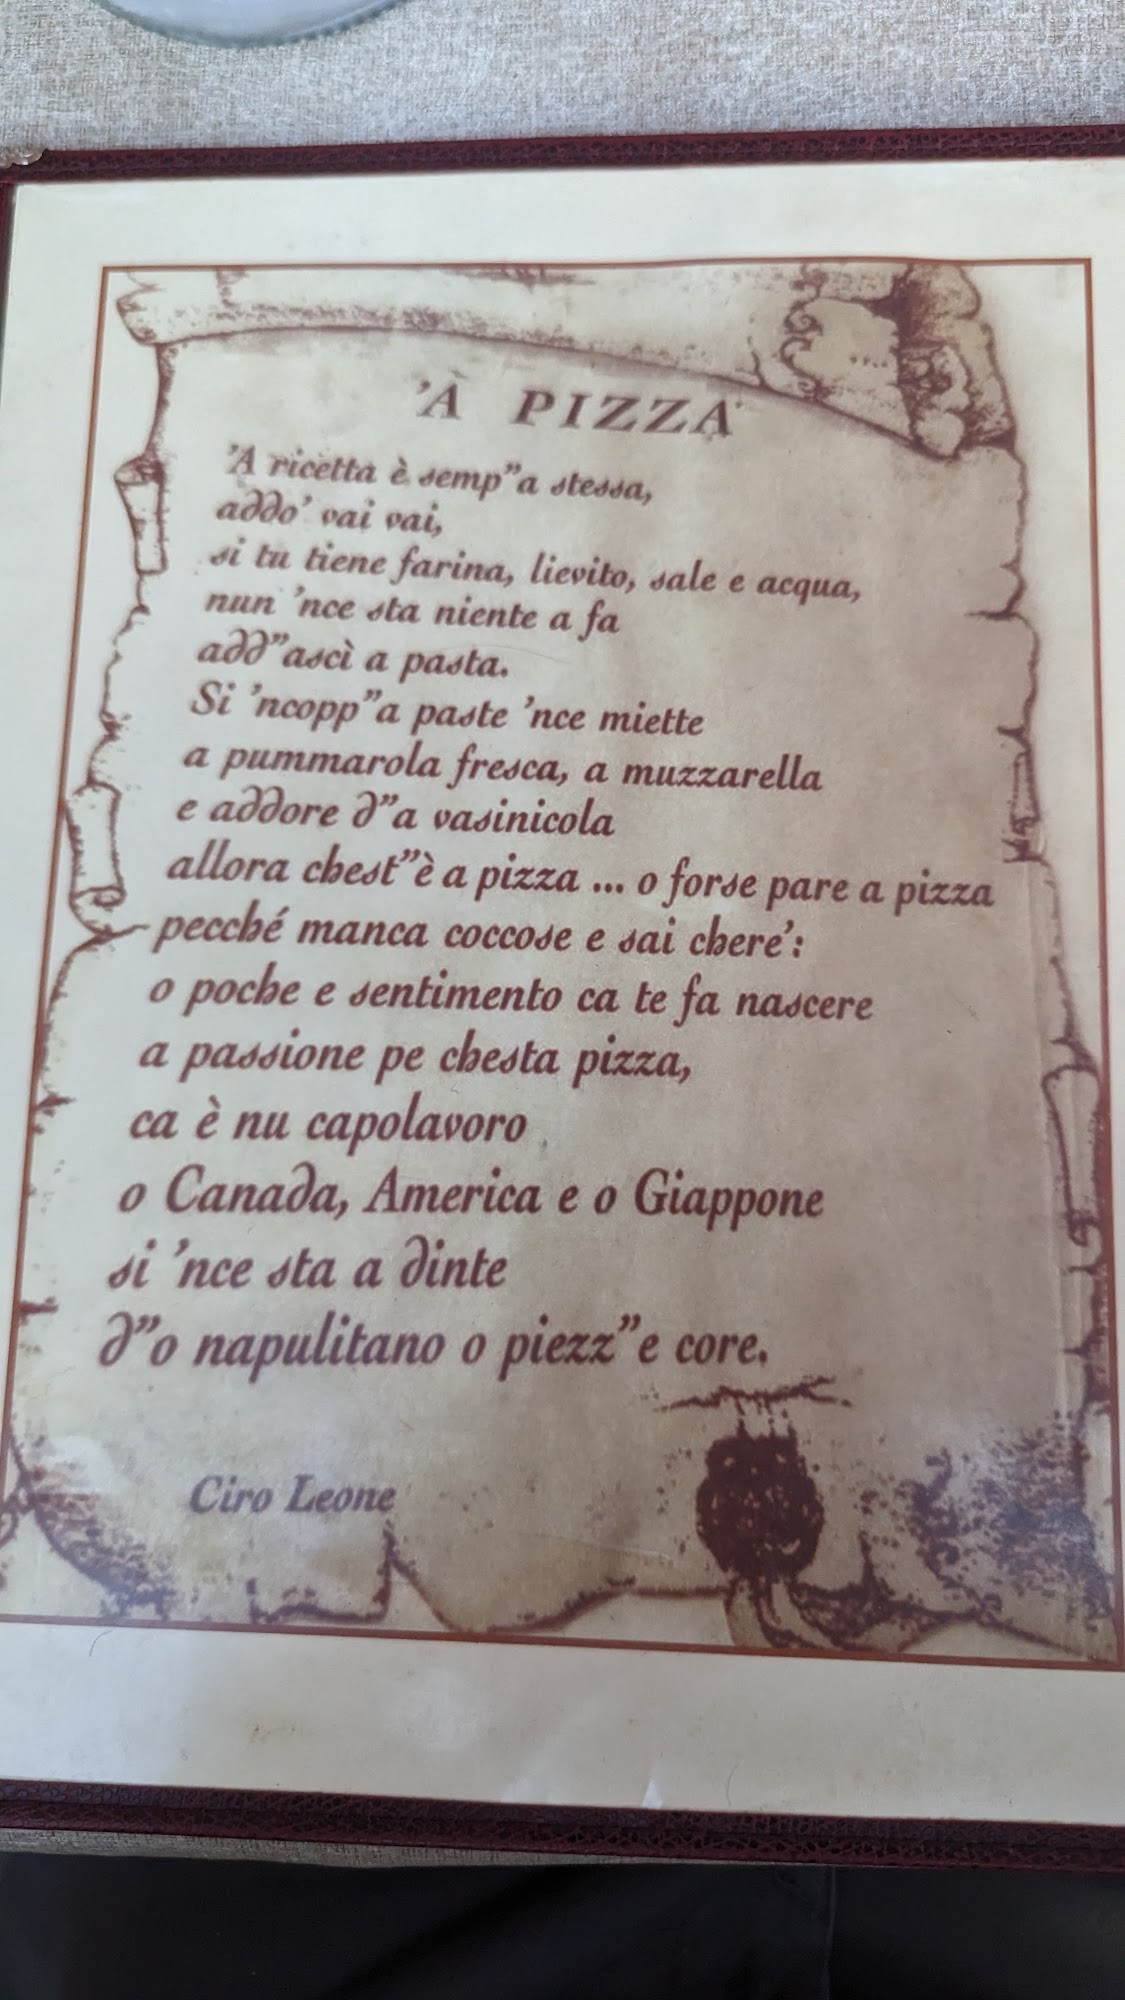 'À PIZZA
'A ricetta è semp''a stessa,
addo' vai vai,
si tu tiene farina, lievito, sale e acqua,
nun 'nce sta niente a fa
add''ascì a pasta.
Si 'ncopp''a paste 'nce miette
a pummarola fresca, a muzzarella
e addore d''a vasinicola
allora chest''è a pizza ... o forse pare a pizza
pecché manca coccose e sai chere':
o poche e sentimento ca te fa nascere
a passione pe chesta pizza,
ca è nu capolavoro
o Canada, America e o Giappone
si 'nce sta a dinte
d''o napulitano o piezz''e core.
Ciro Leone